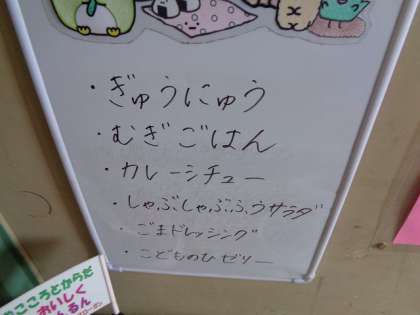 ・ぎゅうにゅう
・むぎごはん
・カレーシチュー
・しゃぶしゃぶふうサラダ
・ごまドレッシング
・こどものひゼリー
こころとからだ
おいしく